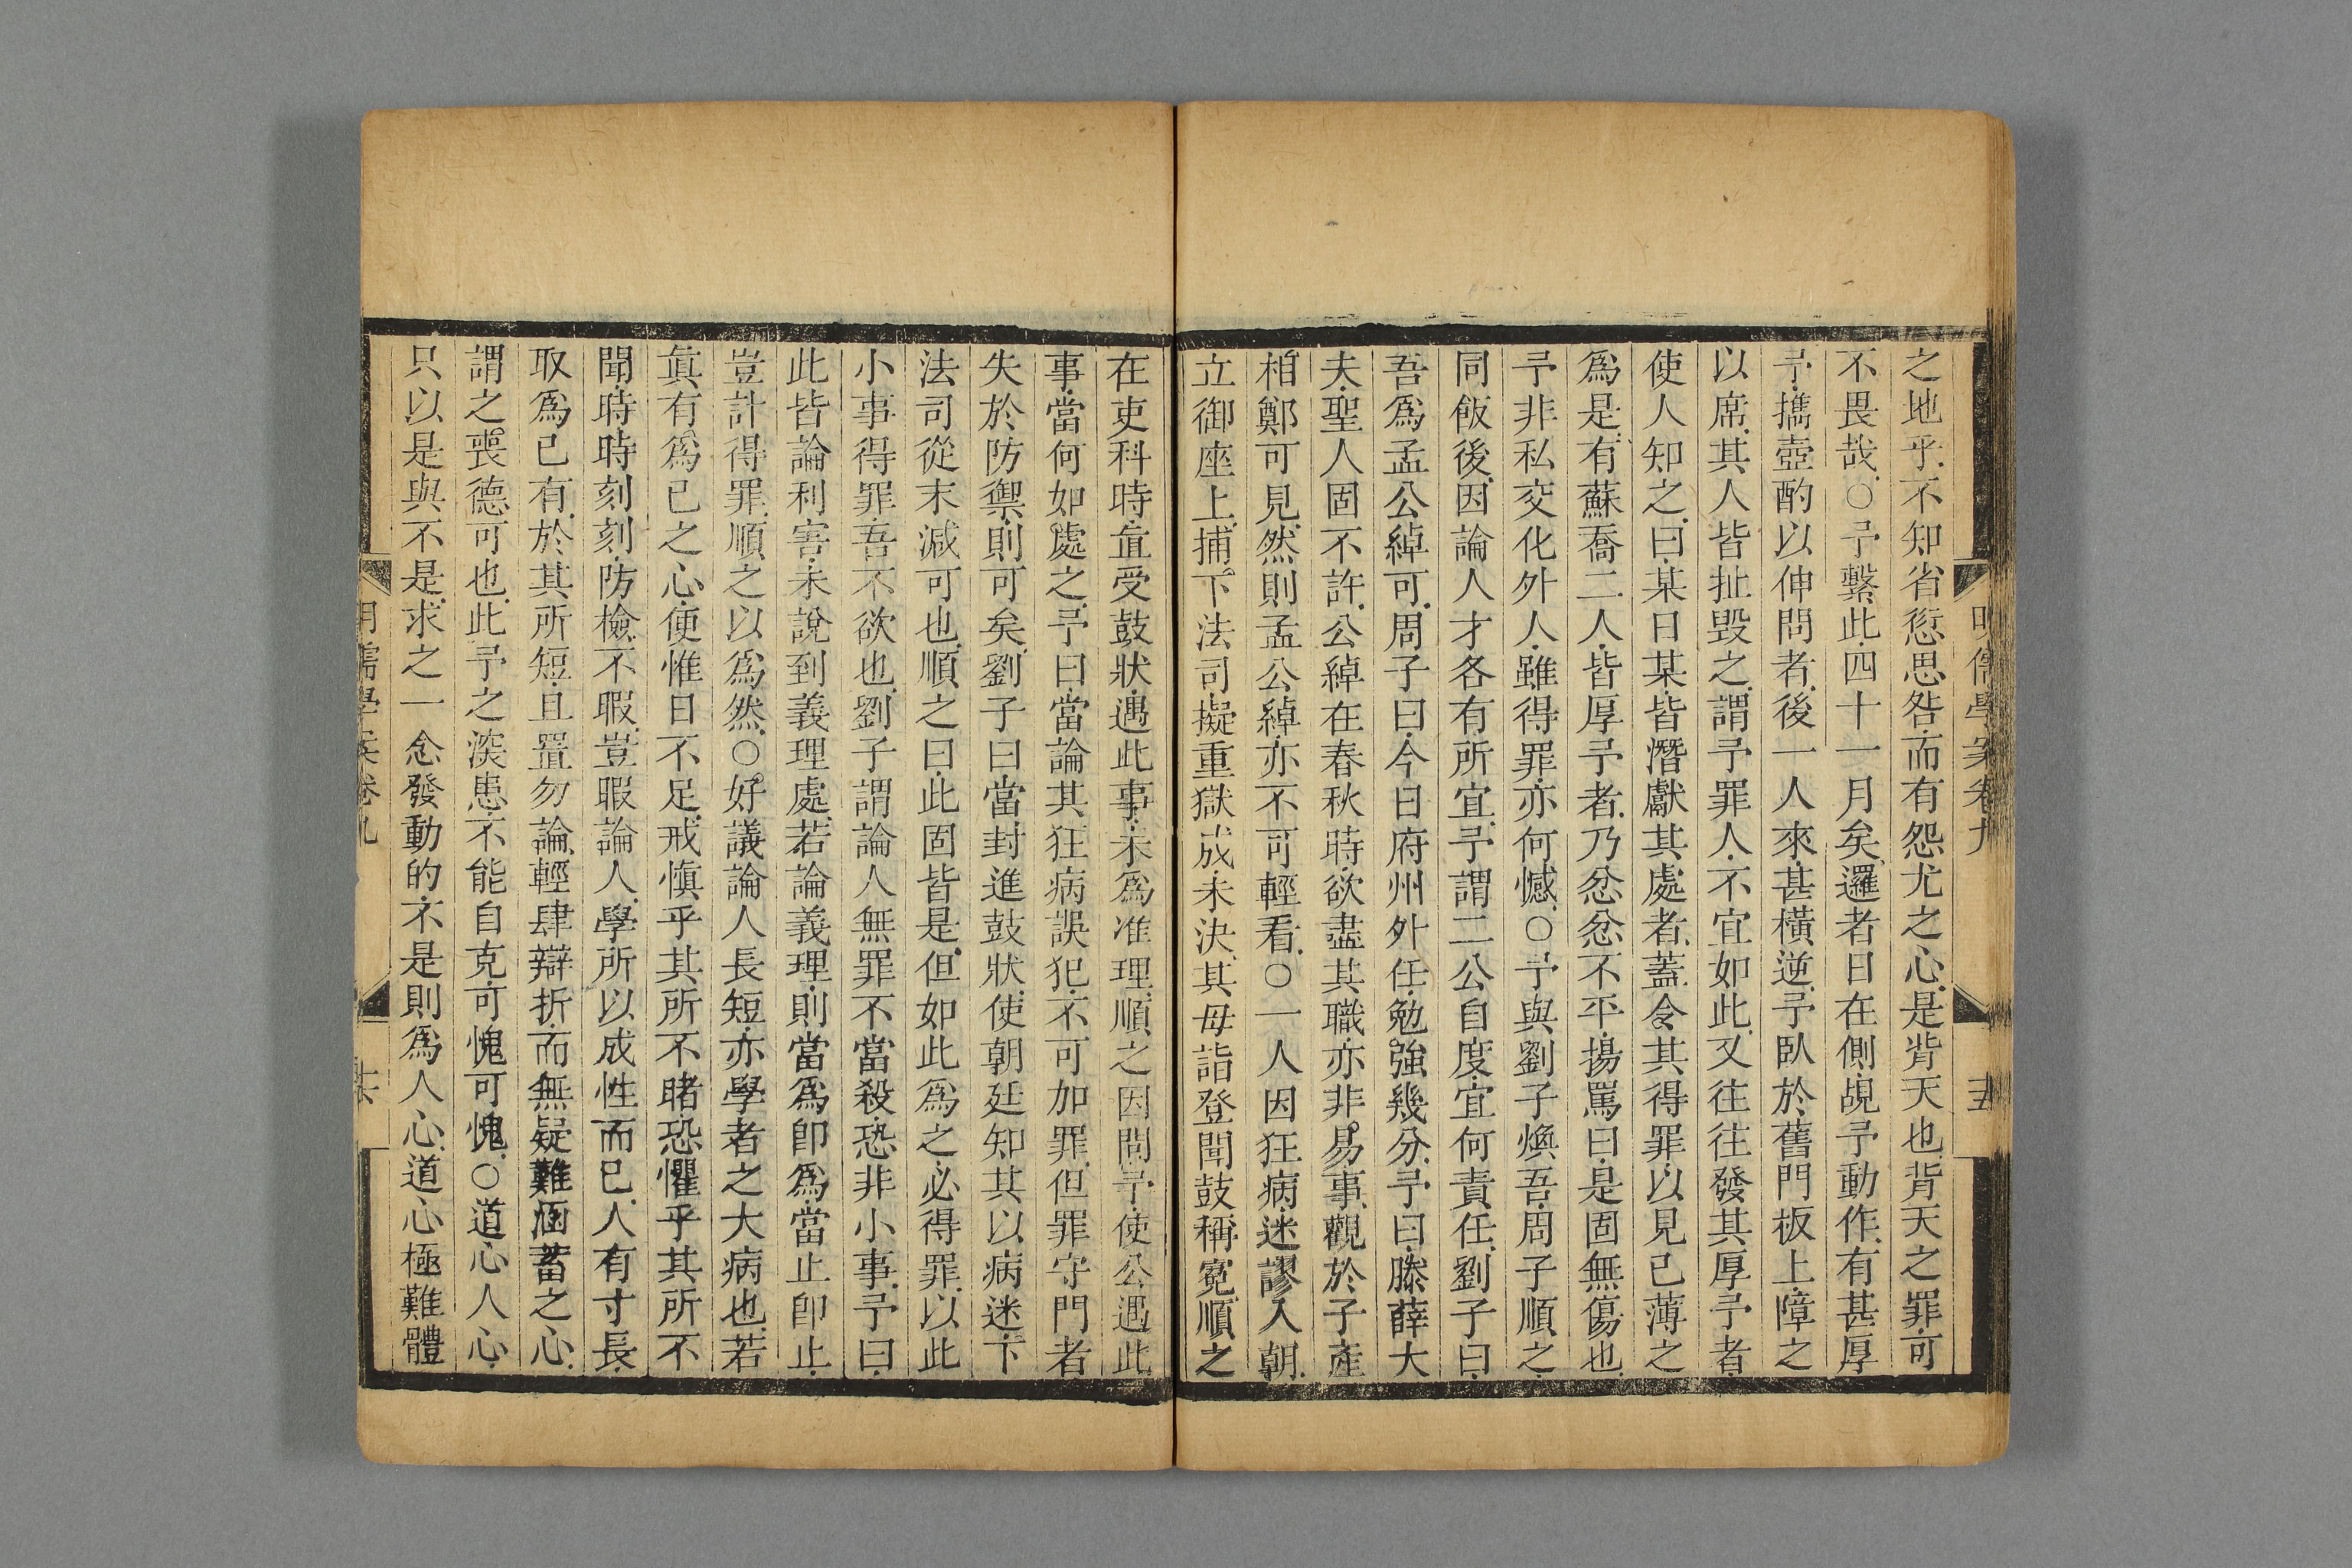 明儒學案卷九
十五
之地乎不知省愆思咎而有怨尤之心是背天也背天之罪可
不畏哉○予繫此四十一月矣邏者日在側覘予動作有甚厚
予攜壺酌以伸問者後一人來甚橫逆予臥於舊門板上障之
以席其人皆扯毁之謂予罪人不宜如此又往往發其厚予者
使人知之曰某日某皆潛獻其處者蓋令其得罪以見己薄之
爲是有蘇喬二人皆厚予者乃忿忿不平揚罵曰是固無傷也
予非私交化外人雖得罪亦何憾○予與劉子煥吾周子順之
同飯後因論人才各有所宜予謂二公自度宜何責任劉子曰
吾爲孟公綽可周子曰今日府州外任勉強幾分予曰滕薛大
夫聖人固不許公綽在春秋時欲盡其職亦非易事觀於子產
相鄭可見然則孟公綽亦不可輕看○一人因狂病迷謬入朝
立御座上捕下法司擬重獄成未決其母詣登聞鼓稱寃順之
在吏科時直受鼓狀遇此事未爲准理順之因問予使公遇此
事當何如處之予曰當論其狂病誤犯不可加罪但罪守門者
失於防禦則可矣劉子曰當封進鼓狀使朝廷知其以病迷下
法司從末減可也順之曰此固皆是但如此爲之必得罪以此
小事得罪吾不欲也劉子謂論人無罪不當殺恐非小事予曰
此皆論利害未說到義理處若論義理則當爲卽爲當止卽止
豈計得罪順之以爲然○好議論人長短亦學者之大病也若
眞有爲已之心便惟日不足戒愼乎其所不睹恐懼乎其所不
聞時時刻刻防檢不暇豈暇論人學所以成性而已人有寸長
取爲已有於其所短且置勿論輕肆辯折而無疑難涵蓄之心
謂之喪德可也此予之深患不能自克可愧可愧○道心人心
只以是與不是求之一念發動的不是則爲人心道心極難體
明儒學案卷九
十六